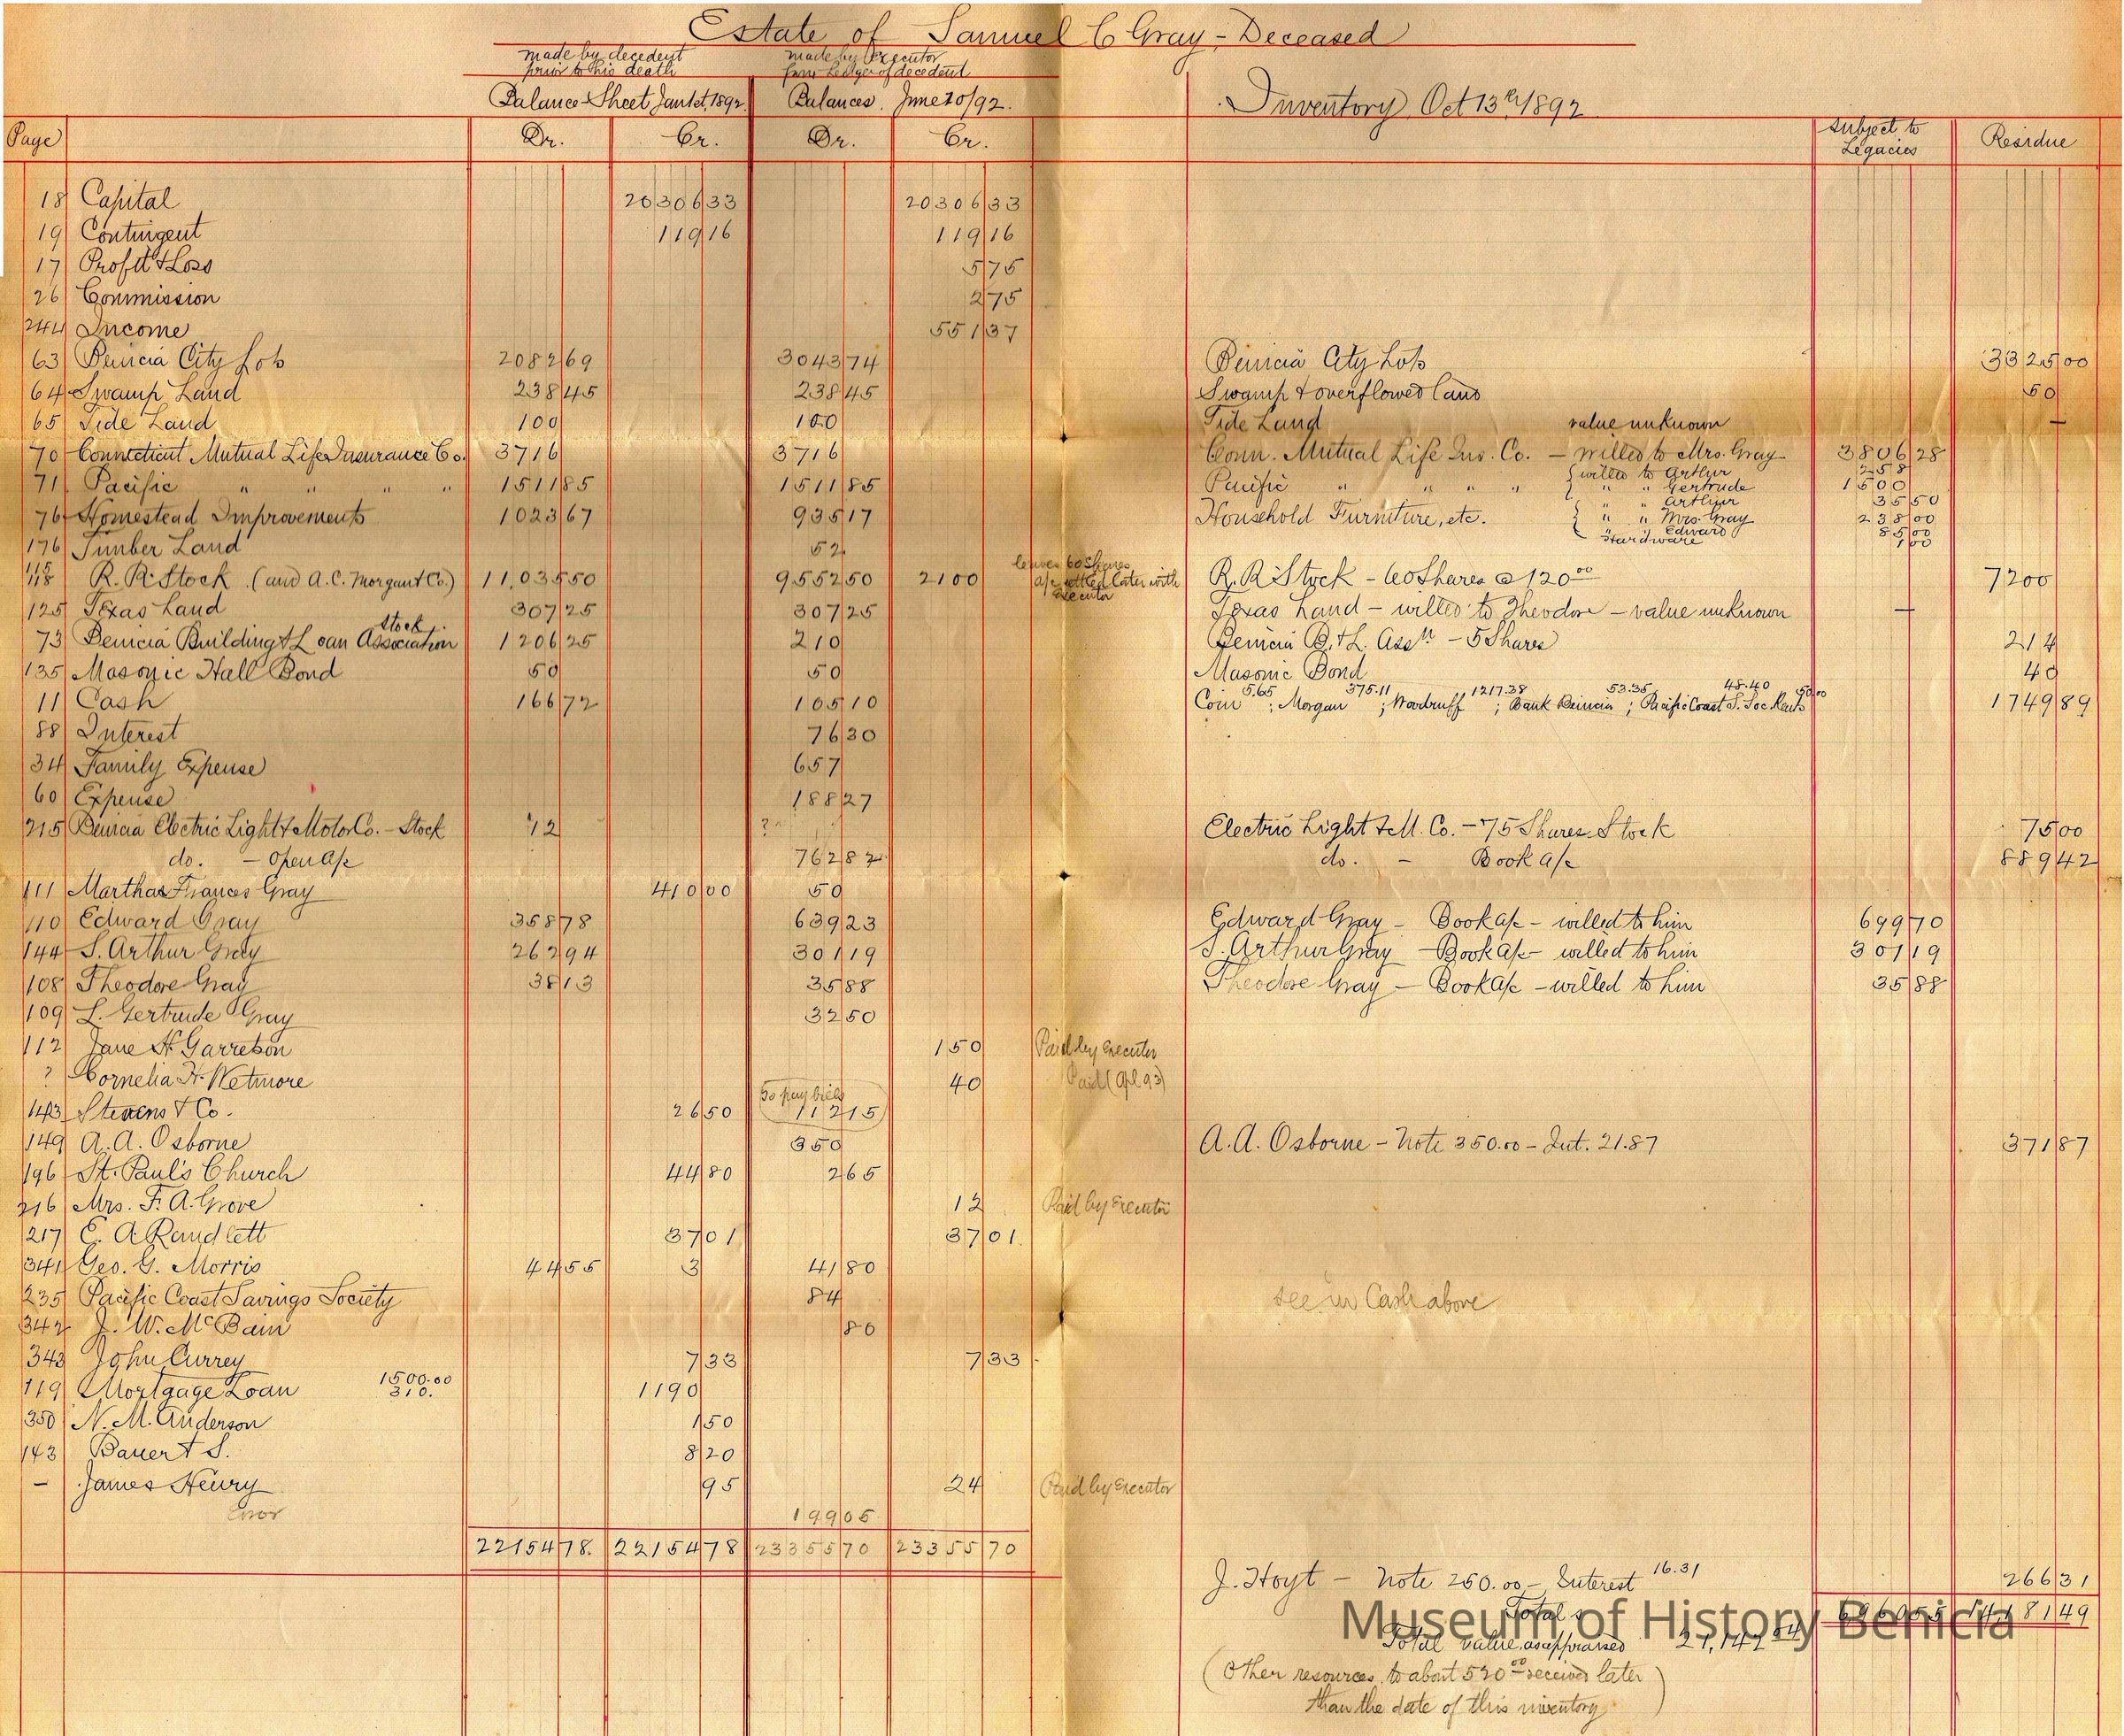 Estate of Samuel C Gray - Deceased
made by decedent prior to his death made by Executor from Ledger of decedent
Balance Sheet Jan 1st, 1892. Balances June 20/92. Inventory Oct 13th, 1892
Page Dr. Cr. Dr. Cr. subject to Legacies Residue
18 Capital 20306 33 20306 33
19 Contingent 119 16 119 16
17 Profit & Loss 5 75
26 Commission 2 75
244 Income 551 37
63 Benicia City Lots 2082 69 3043 74 Benicia City Lots 3325 00
64 Swamp Land 238 45 238 45 Swamp & overflowed land 50
65 Tide Land 100 100 Tide Land value unknown —
70 Connecticut Mutual Life Insurance Co. 3716 3716 Conn. Mutual Life Ins. Co. — willed to Mrs. Gray 3806 28
71 Pacific " " " " 1511 85 1511 85 Pacific " " " " { willed to Arthur 258
" " Gertrude 1500
76 Homestead Improvements 1023 67 935 17 Household Furniture, etc. { " " Arthur 35 50
" " Mrs. Gray 238 00
" " Edward 85 00
Hardware 1 00
176 Timber Land 52
115 118 R. R. Stock (and A. C. Morgan & Co.) 11,035 50 9552 50 2100 leaves 60 shares a/c settled later with Executor R. R. Stock - 60 Shares @ 120 00 7200
125 Texas Land 307 25 307 25 Texas Land - willed to Theodore - value unknown —
73 Benicia Building & Loan Association stock 1206 25 210 Benicia B. & L. Assn - 5 Shares 214
135 Masonic Hall Bond 50 50 Masonic Bond 40
11 Cash 166 72 105 10 Coin 5.65; Morgan 375.11; Woodruff 1217.38; Bank Benicia 53.35; Pacific Coast S. Soc. 48.40 Rents 50.00 1749 89
88 Interest 76 30
34 Family Expense 657
60 Expense 188 27
215 Benicia Electric Light & Motor Co. - Stock 12 ? Electric Light & M. Co. - 75 Shares Stock 75 00
do. - Open a/c 762 82 do. - Book a/c 889 42
111 Martha Frances Gray 410 00 50
110 Edward Gray 358 78 639 23 Edward Gray - Book a/c - willed to him 699 70
144 S. Arthur Gray 262 94 301 19 S. Arthur Gray - Book a/c - willed to him 301 19
108 Theodore Gray 38 13 35 88 Theodore Gray - Book a/c - willed to him 35 88
109 L. Gertrude Gray 32 50
112 Jane H. Garretson 150 Paid by Executor
? Cornelia H. Wetmore 40 Paid (Apl 93)
143 Stevens & Co. 26 50 To pay bills 112 15
149 A. A. Osborne 350 A. A. Osborne - Note 350.00 - Int. 21.87 371 87
196 St. Paul's Church 44 80 2 65
216 Mrs. F. A. Grove 12 Paid by Executor
217 E. A. Randlett 37 01 37 01
341 Geo. G. Morris 44 55 3 41 80
235 Pacific Coast Savings Society 84 see in Cash above
342 J. W. McBain 80
343 John Currey 7 33 7 33
119 Mortgage Loan 1500.00 310. 1190
350 N. M. Anderson 1 50
143 Bauer & S. 8 20
- James Henry 95 24 Paid by Executor
Error 199 05
22154 78. 22154 78 23355 70 23355 70
J. Hoyt - Note 250.00 - Interest 16.31 266 31
Totals 6960 55 14181 49
Total value as appraised 21,142 04
(Other resources, to about 520 00 received later
than the date of this inventory)
Museum of History Benicia